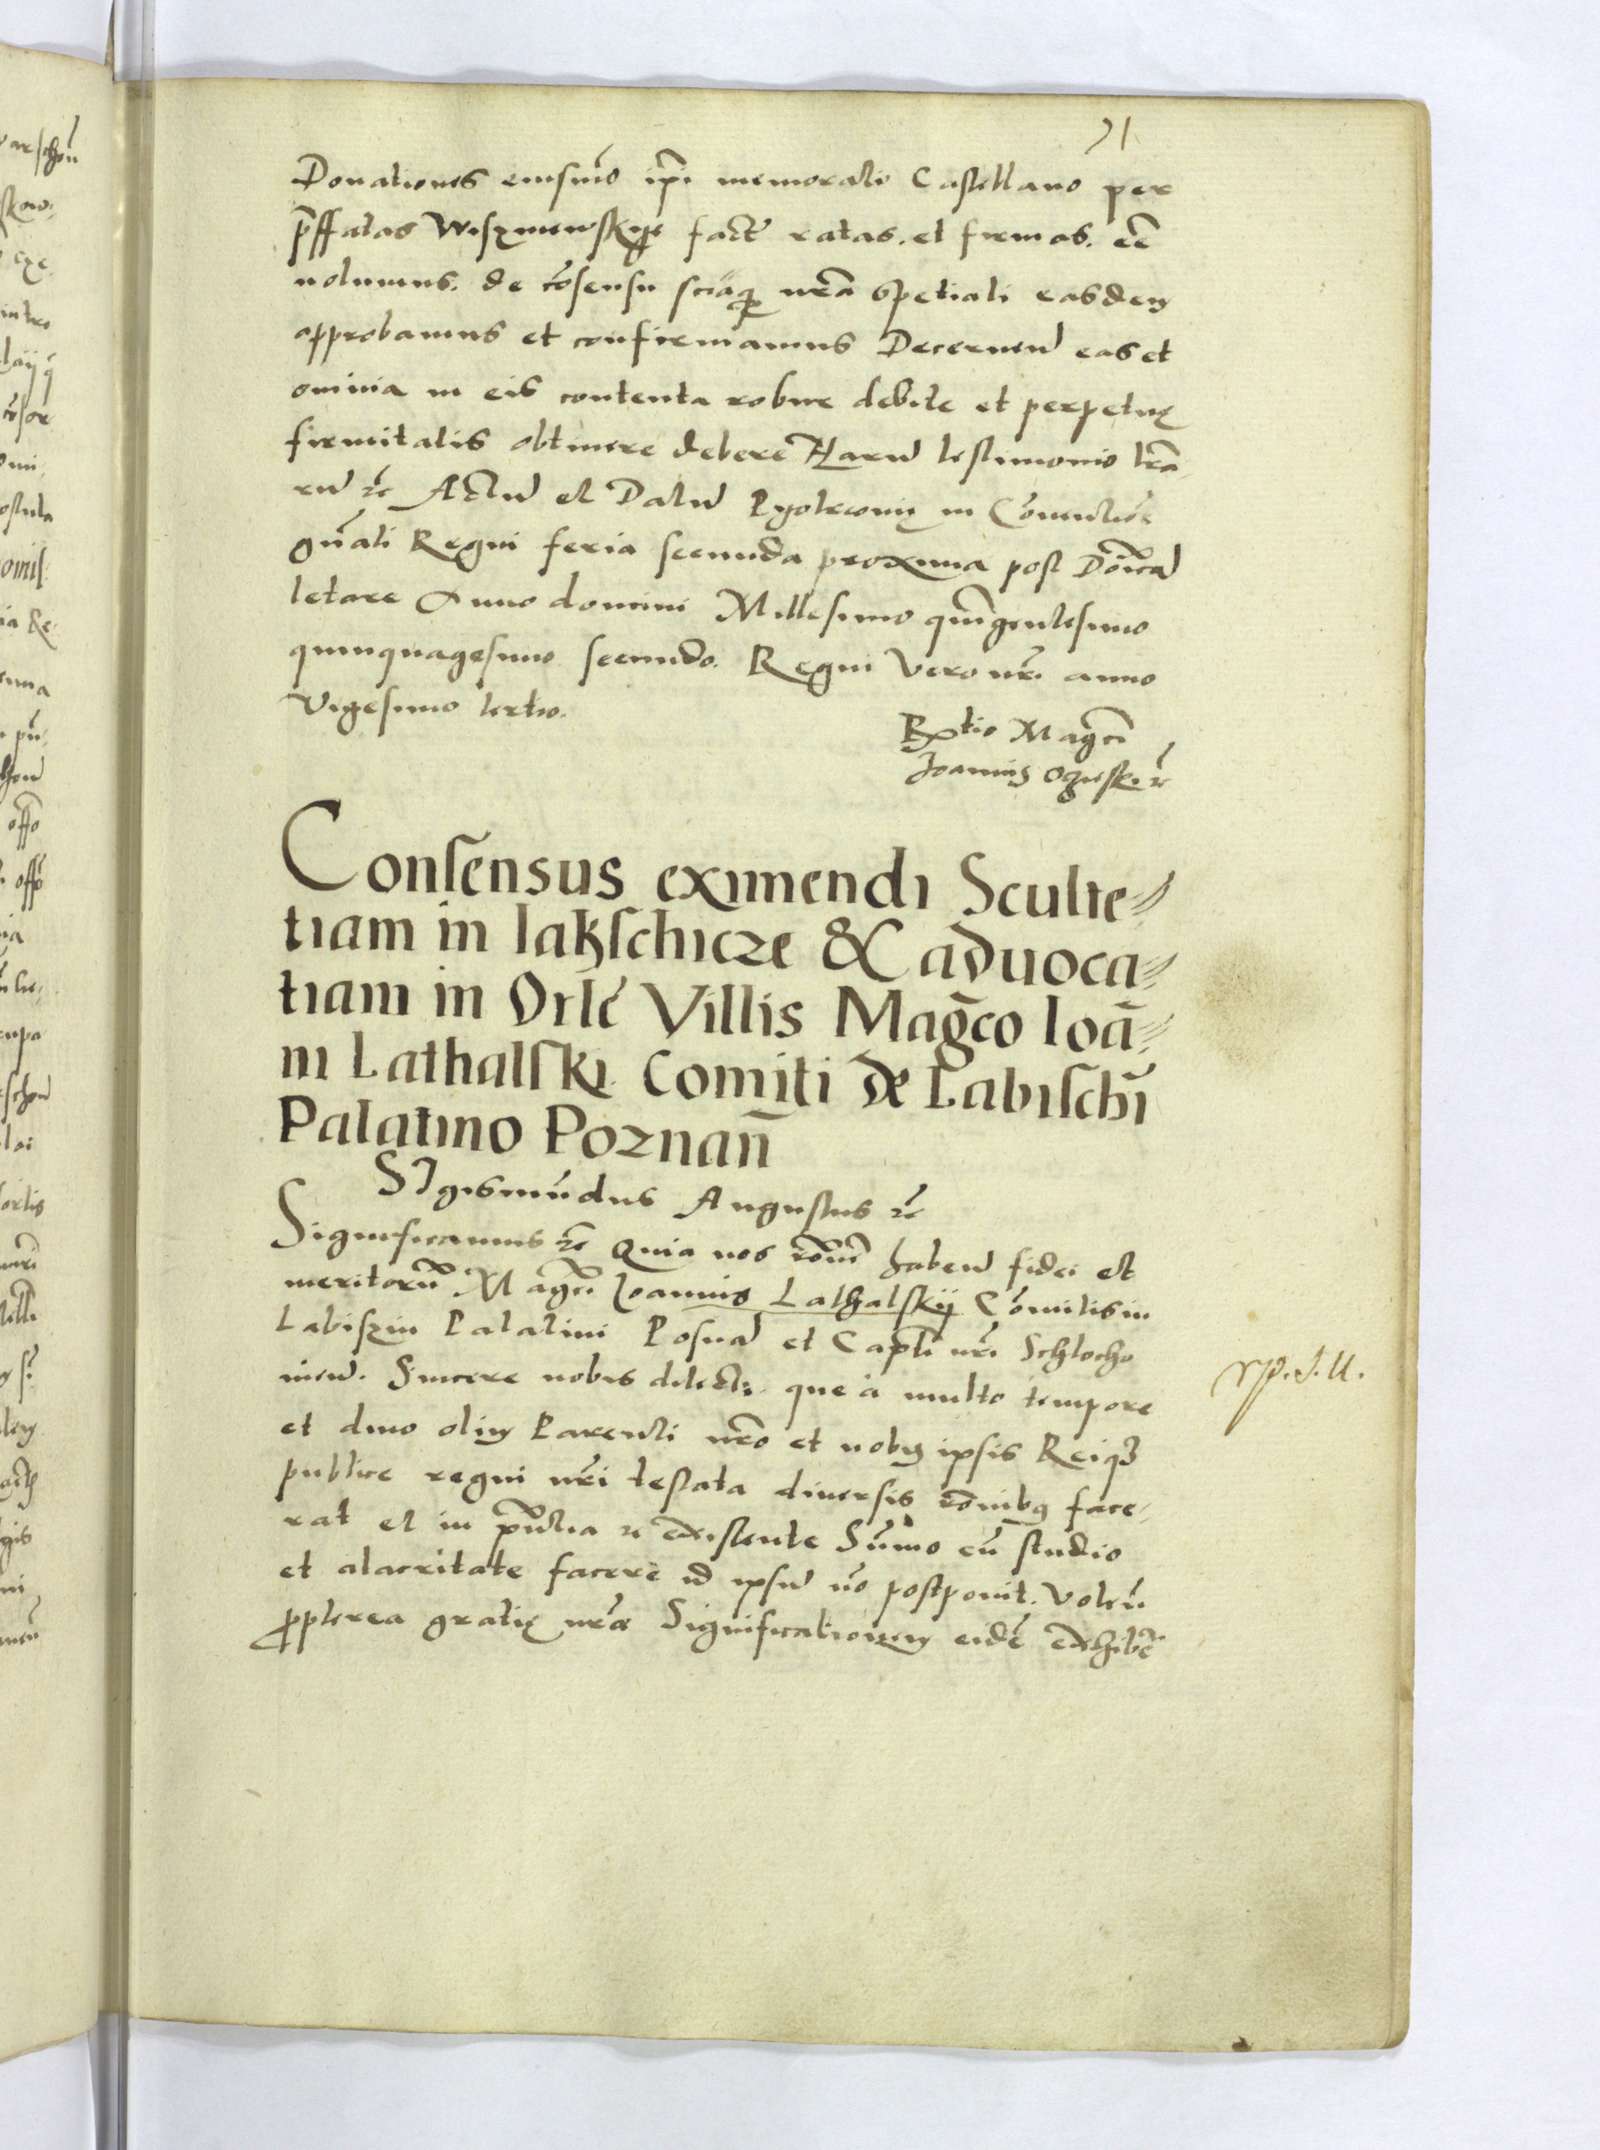 71
Donationes eiusmo͂ ip͂i memorato Castellano per
p͂ffatas Wiszniewskye fact͂ ratas. et firmas. ee͂
uolumus. de co͂sensu sciaq͂ nr͂a spetiali easdem
approbamus et confirmamus Decernen͂ eas et
omnia in eis contenta robur debite et perpetuę
firmitatis obtinere debere Harum testimonio lr͂a
rum ꝛc͂ Actum et Datum Pyotrcouię in Conuentio͂e
gn͂ali Regni feria secunda proxima post Do͂icam
letare Anno domini Millesimo quingentesimo
quinquagesimo secundo. Regni Vero nr͂i anno
Vigesimo tertio.
R͂tio Mag͂ci
Joannis Oczieski ꝛc͂
Consensus eximendi Sculte⸗
tiam in Iakschicze & aduoca⸗
tiam in Orle͂ Villis Mag͂co Ioa͂⸗
ni Lathalski Comiti de Labischi͂
Palatino Poznan͂
SIgismu͂dus Augustus ꝛc͂
Significamus ꝛc͂ Quia nos ro͂em͂ haben͂ fidei et
meritoru͂ Mag͂ci Joannis Lathalskij Comitis in
Labiszin Palatini Posnan͂ et Capt͂i nr͂i Schlocho
uien͂. Sincere nobis dilecti. que a multo tempore
et diuo olim Parenti nr͂o et nobis ipsis Reiq͂
publice regni nr͂i testata diuersis ro͂nibus face⸗
rat et in pn͂tia ꝛ existente Su͂mo cu͂ studio
et alacritate facere id ipsum no͂ postponit. Volen͂
propterea gratię nr͂ae Significationem eide͂ exhibe͂